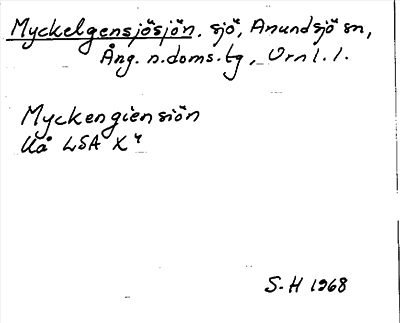 Myckelgensjösjön. sjö, Anundsjö sn,
Ång. n. doms. tg, Urn l. 1.
Myckengiensiön
Uå LSA X4
S-H 1968